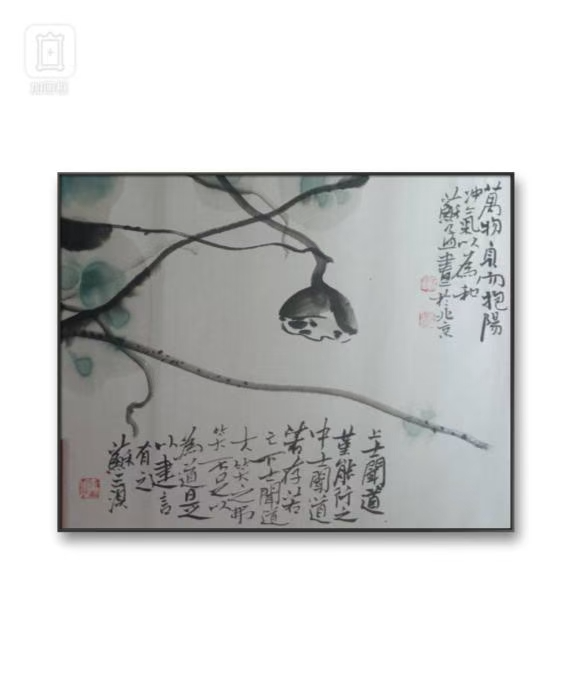 加画框
萬物負而抱陽
冲氣以為和
蘇畫於北京
上士聞道
堇能行之
中士聞道
若存若
亡下士聞道
大笑之弗
笑不足以
為道是
以建言
有之
蘇